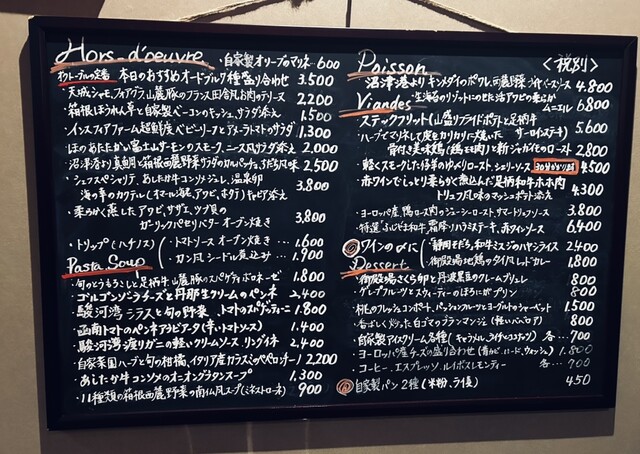 Hors-d'oeuvre 自家製オリーブのマリネ…600
本日のおすすめオードブル7種盛り合わせ 3.500
・天城シャモ、フォアグラ、山麓豚のフランス田舎風お肉のテリーヌ 2.200
・箱根ほうれん草と自家製ベーコンのキッシュ、サラダ添え 1.500
・インスフィアファーム超鮮度ベビーリーフとアメーラトマトのサラダ 1.300
・ほのあたたかい富士山サーモンのスモーク、ニース風サラダ添え 2.000
・沼津港より真鯛と箱根西麓野菜サラダのカルパッチョ、うだち風味 2.500
・シェフスペシャリテ、あしたか牛コンソメジュレ、温泉卵
海の幸のカクテル(オマール海老、アワビ、ホタテ)キャビア添え 3.800
・柔らかく蒸した、アワビ、サザエ、ツブ貝の
ガーリックパセリバターオーブン焼き… 3.800
・トリップ(ハチノス) トマトソースオーブン焼き… 1.600
カン風シードル煮込み… 1.900
Pasta. Soup
・旬のとうもろこしと足柄牛山麓豚のスパゲティボロネーゼ 1.800
・ゴルゴンゾーラチーズと丹那生クリームのペンネ 2,400
・駿河湾シラスと旬の野菜、トマトのスパゲッティーニ 1.800
・函南トマトのペンネアラビアータ(辛いトマトソース) 1.400
・駿河湾渡りガニの軽いクリームソース、リングイネ 2.400
・自家菜園ハーブと旬の柑橘、イタリア産カラスミのペペロンチーノ 2200
・あしたか牛コンソメのオニオングラタンスープ 1.300
・11種類の箱根西麓野菜の南仏風スープ(ミネストローネ) 900
Poisson <税別>
沼津港よりキンメダイのポワレ、西麓野菜 4.800
Viandes 生海苔のリゾットにのせた活アワビの柔らか
ムニエル 6.800
ステックフリット(山盛りフライドポテト)足柄牛
(サーロインステーキ) 5.600
ハーブでマリネして皮をカリカリに焼いた
骨付き美味鶏(鶏モモ肉)と新ジャガイモのロースト 2.800
・軽くスモークした仔羊のゆっくりロースト、シェリーソース 4500
・赤ワインでしっとり柔らかく煮込んだ足柄和牛ホホ肉
トリュフ風味のマッシュポテト添え 4.300
・ヨーロッパ産、鴨ロース肉のジューシーロースト、サマートリュフソース 3.800
・特選ふじやま和牛、霜降りハラミステーキ、赤ワインソース 6.400
ワインの〆に 静岡そだち、和牛ミスジのハヤシライス 2,400
御殿場地鶏のタイ風レッドカレー 1.800
Dessert
・御殿場さくら卵と丹波黒豆のクレームブリュレ 800
・グレープフルーツとスウィーティーのほろにがプリン 800
・桃のフレッシュコンポート、パッションフルーツとヨーグルトのシャーベット 1,500
・香ばしく炒った白ゴマのブランマンジェ(軽いババロア) 800
・自家製アイスクリーム各種(キャラメル、ライチ、ココナッツ) 各…700
・ヨーロッパ産チーズの盛り合わせ(青かび、ハード、ウォッシュ) 1.800
・コーヒー、エスプレッソ、ルイボスレモンティー 各…700
自家製パン2種(米粉、ラ侵) 450